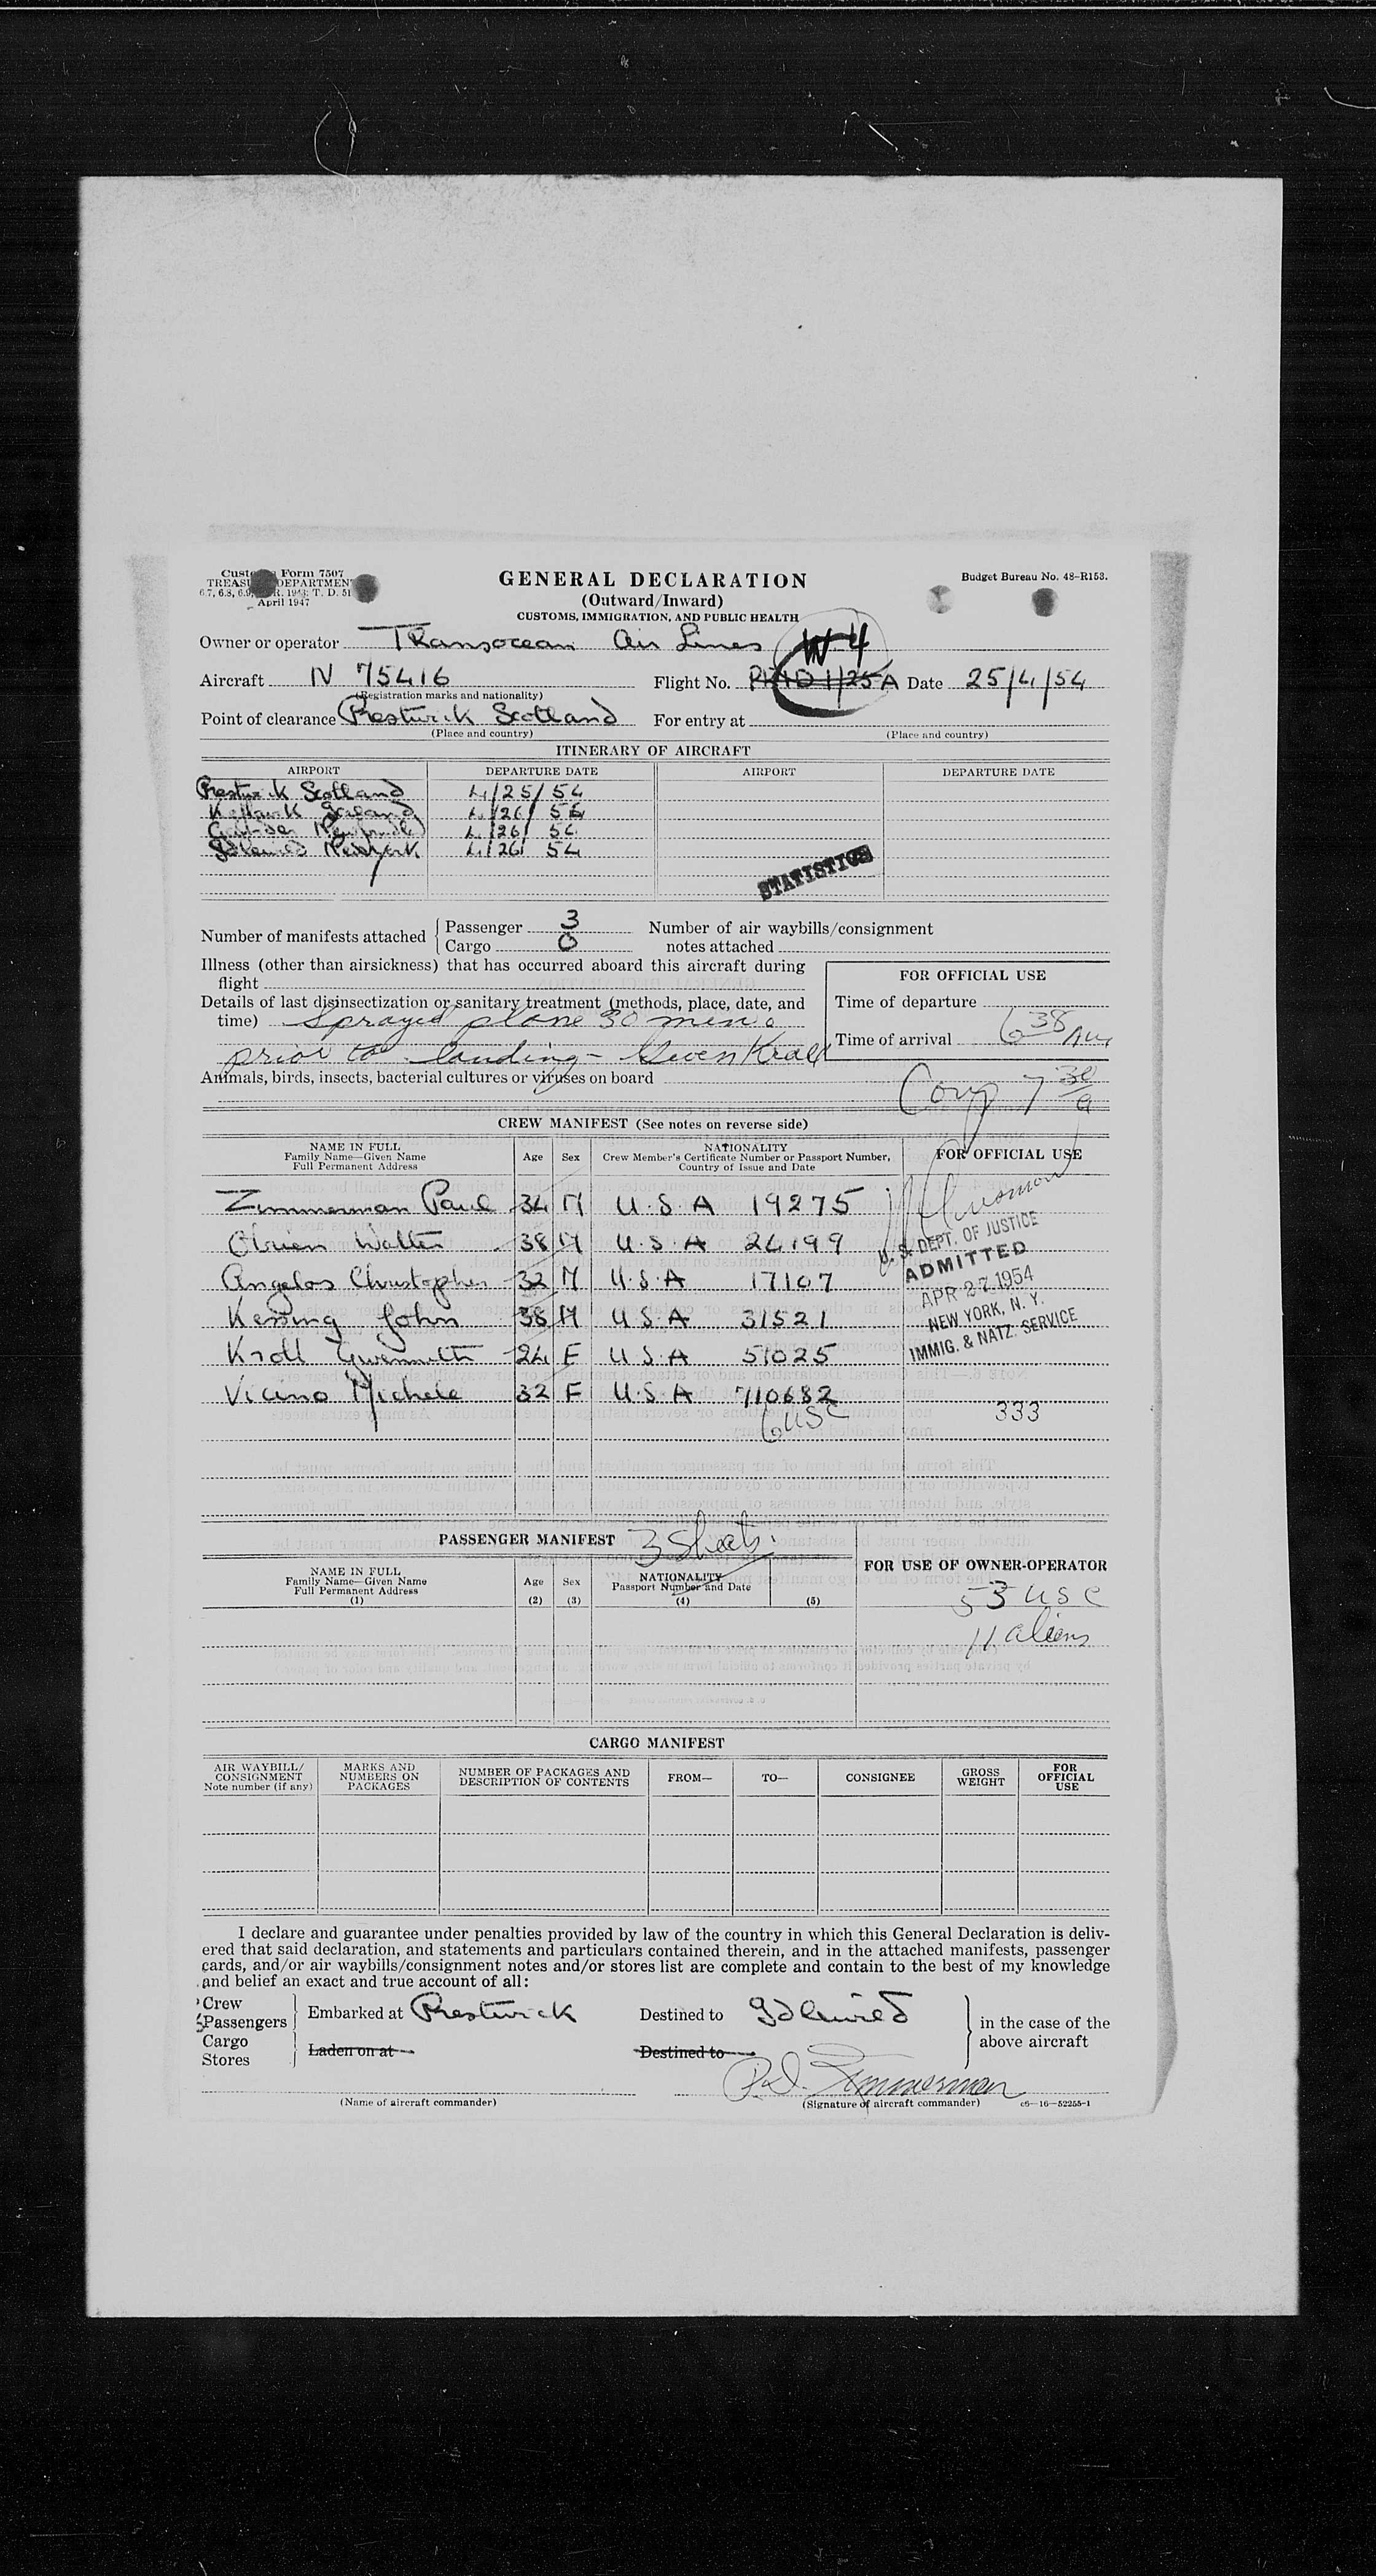 Customs Form 7507
TREASURY DEPARTMENT
April 1947
GENERAL DECLARATION
(Outward/Inward)
CUSTOMS, IMMIGRATION, AND PUBLIC HEALTH
Budget Bureau No. 48-R153.
Owner or operator Transocean Air Lines W 4
Aircraft N 75416 Flight No. Date 25/4/54
(Registration marks and nationality)
Point of clearance Prestwick Scotland For entry at
(Place and country) (Place and country)
ITINERARY OF AIRCRAFT
AIRPORT DEPARTURE DATE AIRPORT DEPARTURE DATE
Prestwick Scotland 4/25/54
4/26/54
Gander 4/26/54
Idlewild New York 4/26/54
STATISTICS
Number of manifests attached Passenger 3 Number of air waybills/consignment
Cargo 0 notes attached
Illness (other than airsickness) that has occurred aboard this aircraft during
flight
FOR OFFICIAL USE
Details of last disinsectization or sanitary treatment (methods, place, date, and
time) Sprayed plane 30 min.
prior to landing - Gwen Kroll
Time of departure
Time of arrival 6 38 AM
Animals, birds, insects, bacterial cultures or viruses on board
Comp 7 30/a
CREW MANIFEST (See notes on reverse side)
NAME IN FULL
Family Name—Given Name
Full Permanent Address
Age Sex
NATIONALITY
Crew Member's Certificate Number or Passport Number,
Country of Issue and Date
FOR OFFICIAL USE
Zimmerman Paul 34 M U.S.A 19275
Obrien Walter 38 M U.S.A 24199
Angelos Christopher 32 M U.S.A 17107
Kessing John 38 M U S A 31521
Kroll Gwenneth 24 F U S A 51025
Vicino Michele 32 F U.S A 710682
U.S. DEPT. OF JUSTICE
ADMITTED
APR 27 1954
NEW YORK, N. Y.
IMMIG. & NATZ. SERVICE
6 USC
333
PASSENGER MANIFEST 3 Sheets
FOR USE OF OWNER-OPERATOR
NAME IN FULL
Family Name—Given Name
Full Permanent Address
(1)
Age (2) Sex (3)
NATIONALITY
Passport Number and Date
(4) (5)
53 USC
11 aliens
CARGO MANIFEST
AIR WAYBILL/
CONSIGNMENT
Note number (if any)
MARKS AND
NUMBERS ON
PACKAGES
NUMBER OF PACKAGES AND
DESCRIPTION OF CONTENTS
FROM— TO— CONSIGNEE
GROSS
WEIGHT
FOR
OFFICIAL
USE
I declare and guarantee under penalties provided by law of the country in which this General Declaration is deliv-
ered that said declaration, and statements and particulars contained therein, and in the attached manifests, passenger
cards, and/or air waybills/consignment notes and/or stores list are complete and contain to the best of my knowledge
and belief an exact and true account of all:
Crew
Passengers Embarked at Prestwick Destined to Idlewild in the case of the
Cargo above aircraft
Stores Laden on at Destined to
P.D. Zimmerman
(Name of aircraft commander) (Signature of aircraft commander) c6—16—52255-1